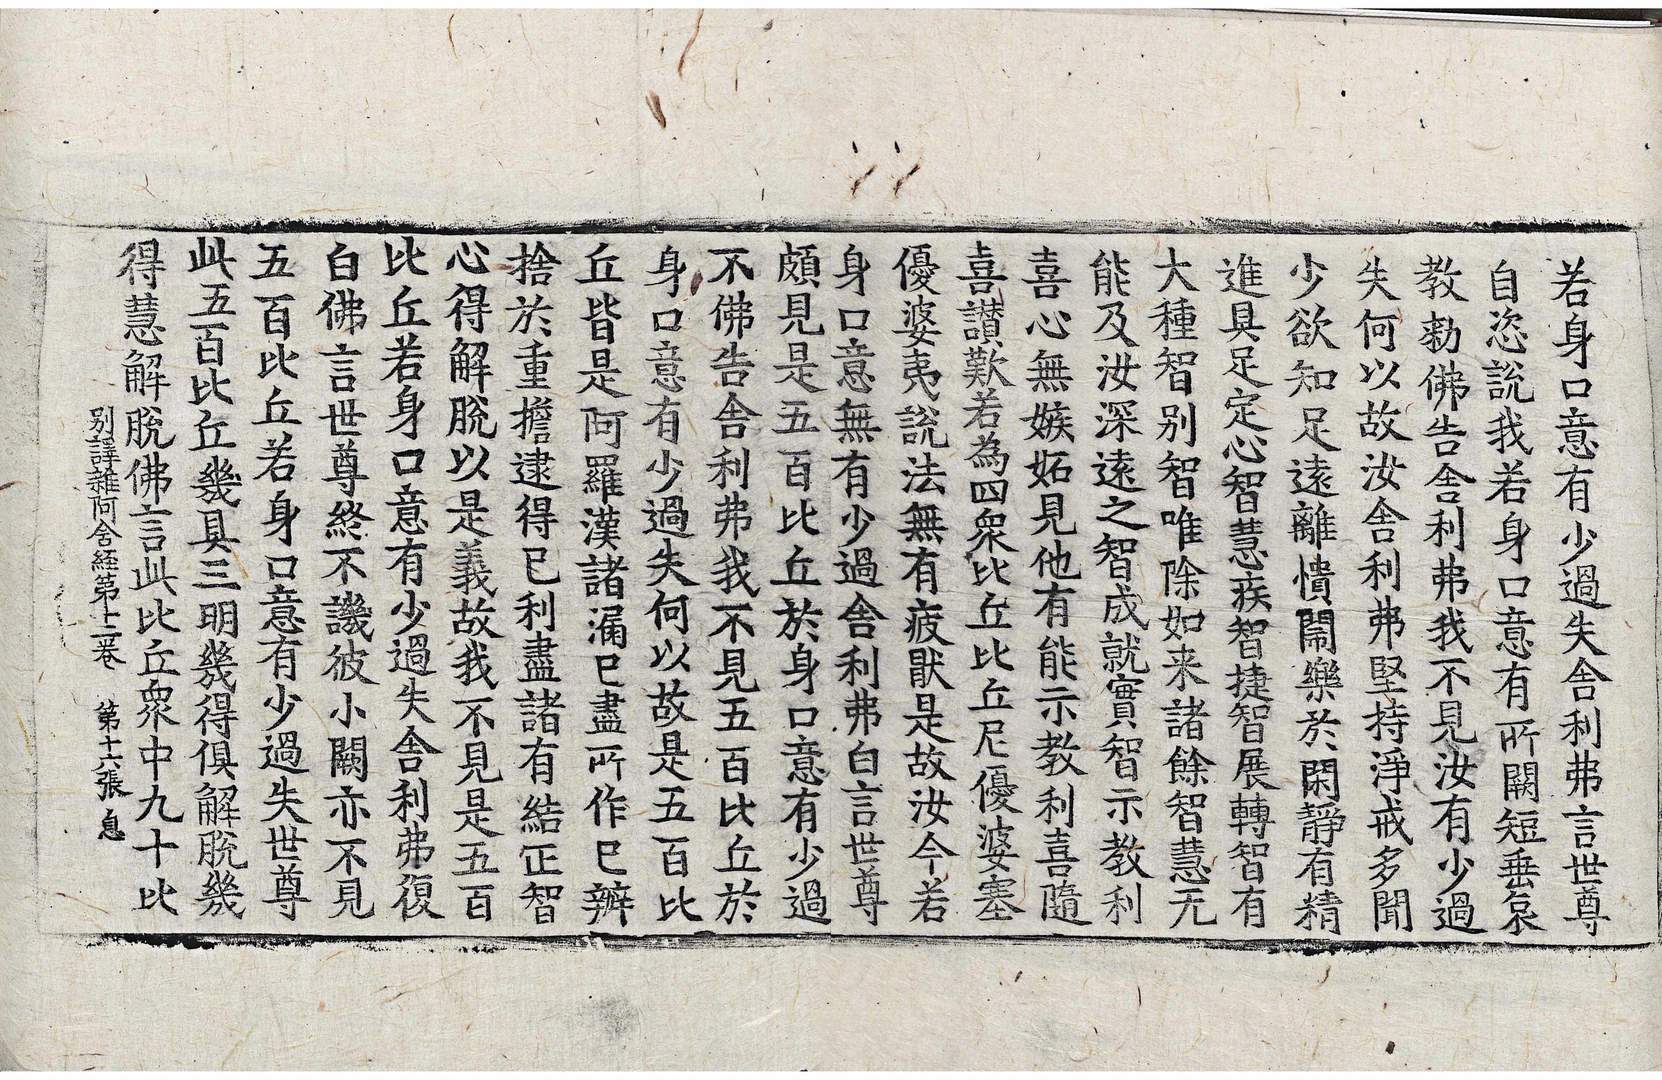 若身口意有少過失舍利弗言世尊
自恣說我若身口意有所闕短垂哀
教勑佛告舍利弗我不見汝有少過
失何以故汝舍利弗堅持淨戒多聞
少欲知足遠離憒閙樂於閑靜有精
進具足定心智慧疾智捷智展轉智有
大種智別智唯除如来諸餘智慧无
能及汝深遠之智成就實智示教利
喜心無嫉妬見他有能示教利喜隨
喜讃歎若為四衆比丘比丘尼優婆塞
優婆夷說法無有疲猒是故汝今若
身口意無有少過舍利弗白言世尊
頗見是五百比丘於身口意有少過
不佛告舍利弗我不見五百比丘於
身口意有少過失何以故是五百比
丘皆是阿羅漢諸漏已盡所作已辦
捨於重擔逮得已利盡諸有結正智
心得解脫以是義故我不見是五百
比丘若身口意有少過失舍利弗復
白佛言世尊終不譏彼小闕亦不見
五百比丘若身口意有少過失世尊
此五百比丘幾具三明幾得俱解脫幾
得慧解脫佛言此比丘衆中九十比
別譯雜阿含経第十二卷　第十六張　息